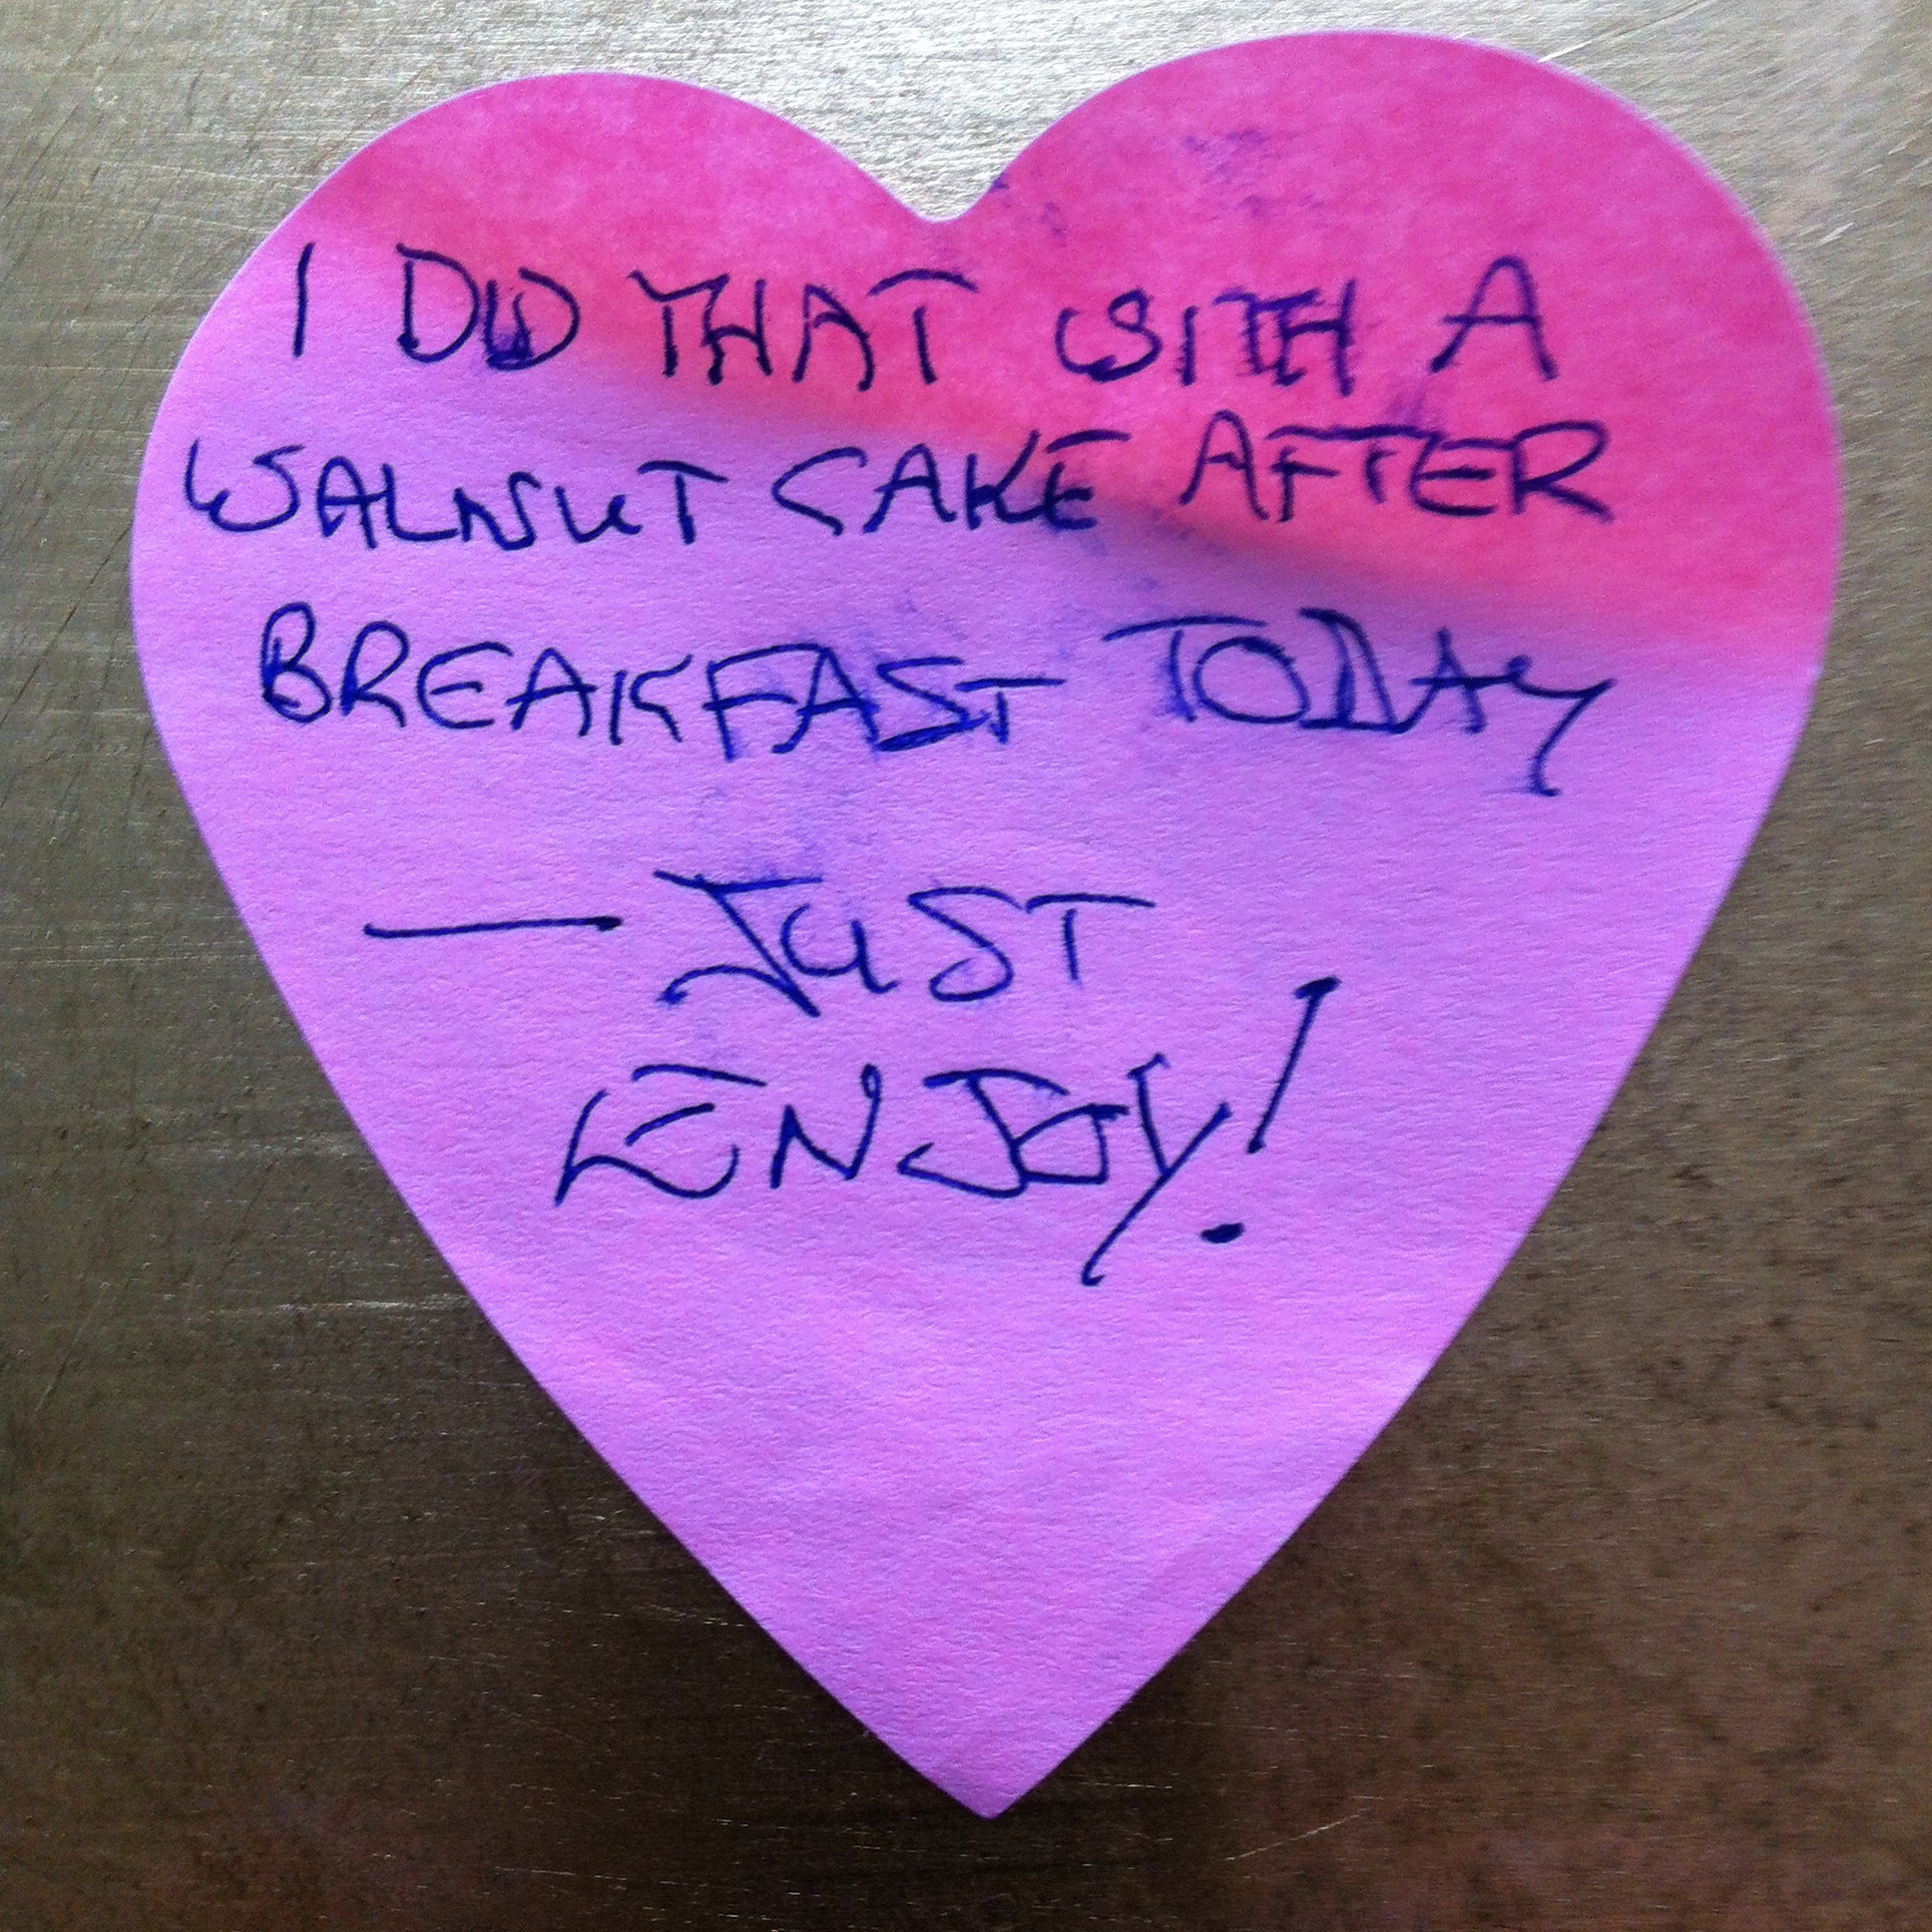 I DID THAT WITH A
WALNUT CAKE AFTER
BREAKFAST TODAY
— JUST
ENJOY!